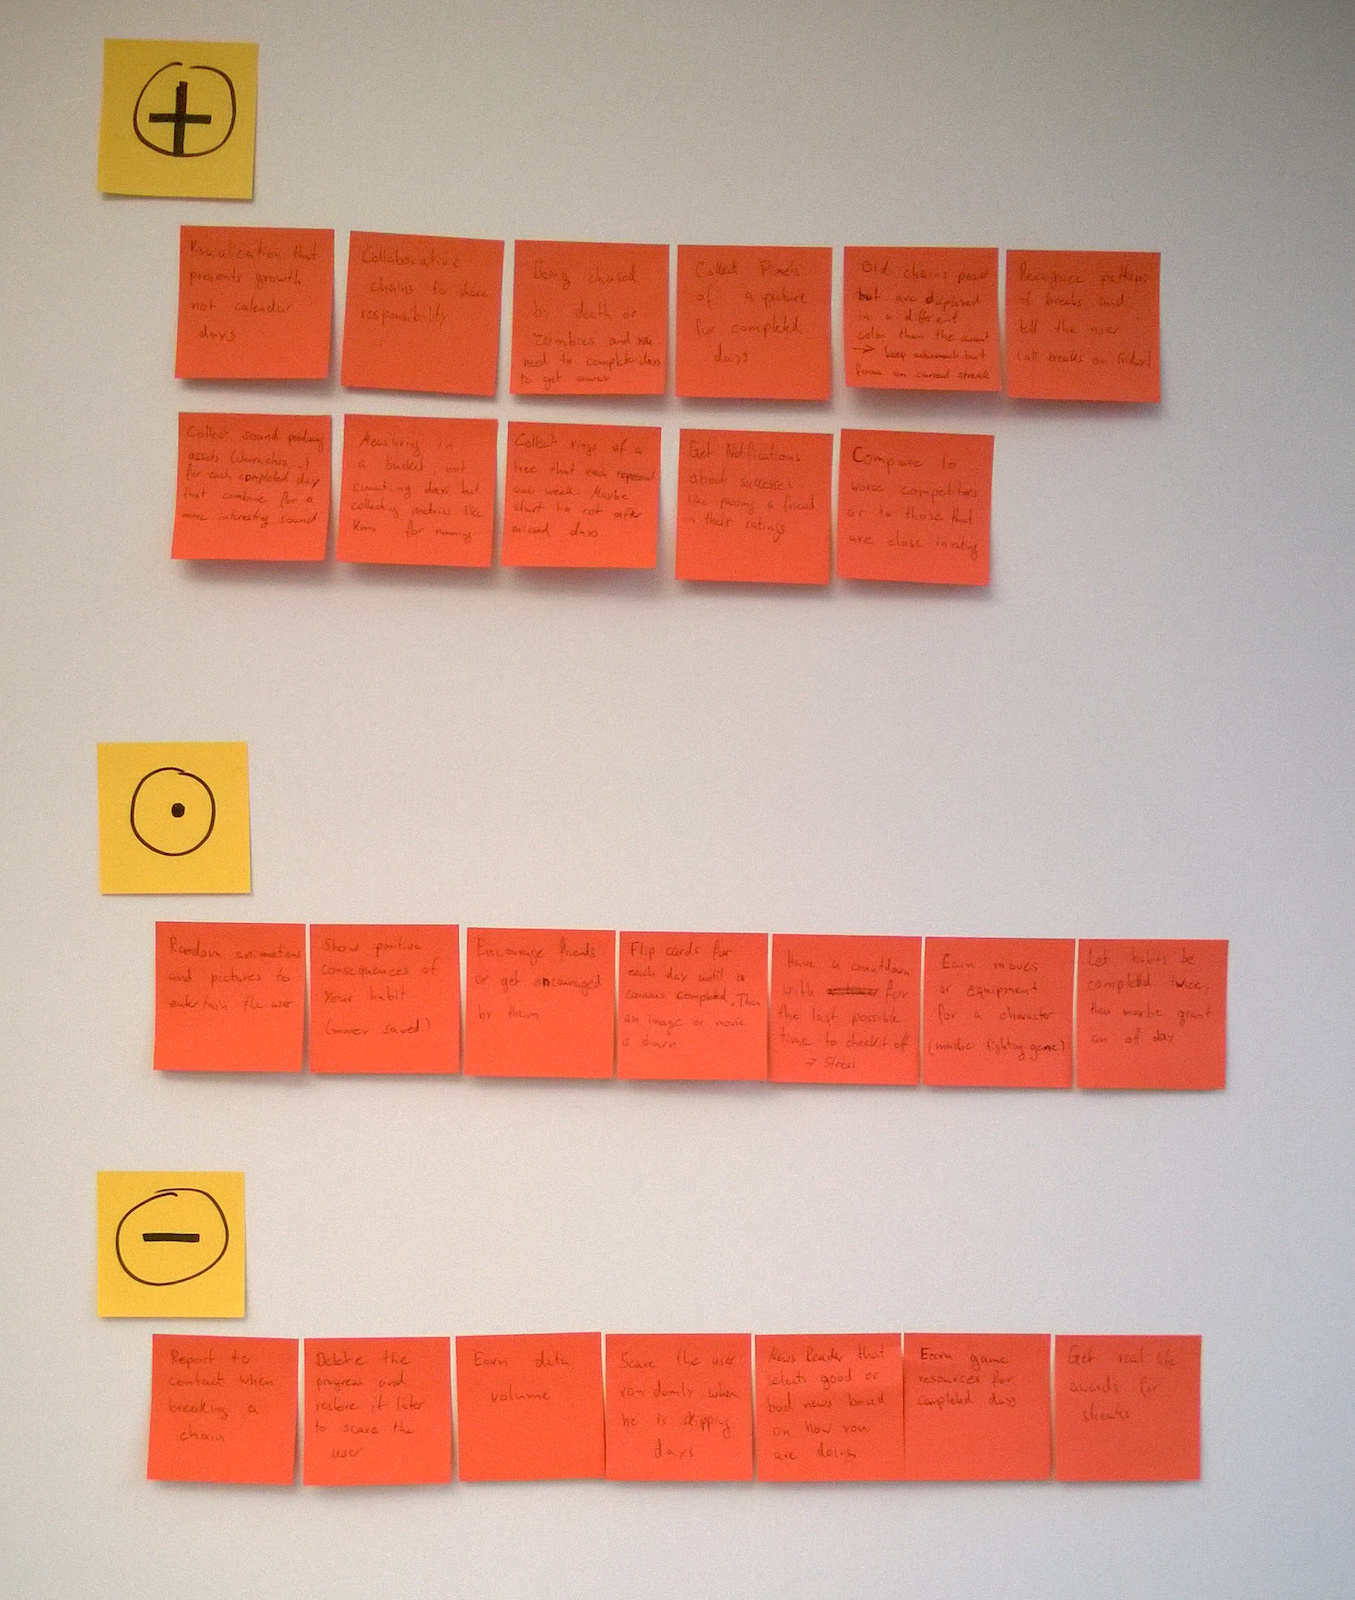 +
Visualization that
presents growth
not calendar
days
Collaborative
chains to share
responsibility
Being chased
by death or
Zombies and you
need to complete days
to get away
Collect Pixels
of a picture
for completed
days
Old chains
but are displayed
in a different
color than the
→ keep but
focus on current streak
Recognize patterns
of breaks and
tell the user
(all breaks on friday)
Collect sound producing
assets (characters, ..)
for each completed day
that combine for a
more interesting sound
Measuring in
a bucket, not
counting days but
collecting metrics like
Kms for running
Collect rings of a
tree that each represent
one week. Maybe
start to rot after
missed days
Get Notifications
about successes
like passing a friend
in their ratings
Compare to
worse competitors
or to those that
are close in rating
Random animations
and pictures to
entertain the user
Show positive
consequences of
your habit
(money saved)
Encourage friends
or get encouraged
by them
Flip cards for
each day until a
canvas completed. Then
an image or movie
is shown
Have a countdown
with for
the last possible
time to check it off
→ Stress
Earn moves
or equipment
for a character
(maybe fighting game)
Let habits be
completed twice,
then maybe grant
an off day
−
Report to
contact when
breaking a
chain
Delete the
progress and
restore it later
to scare the
user
Earn data
volume
Scare the user
randomly when
he is skipping
days
News Reader that
selects good or
bad news based
on how you
are doing
Earn game
resources for
completed days
Get real life
awards for
streaks